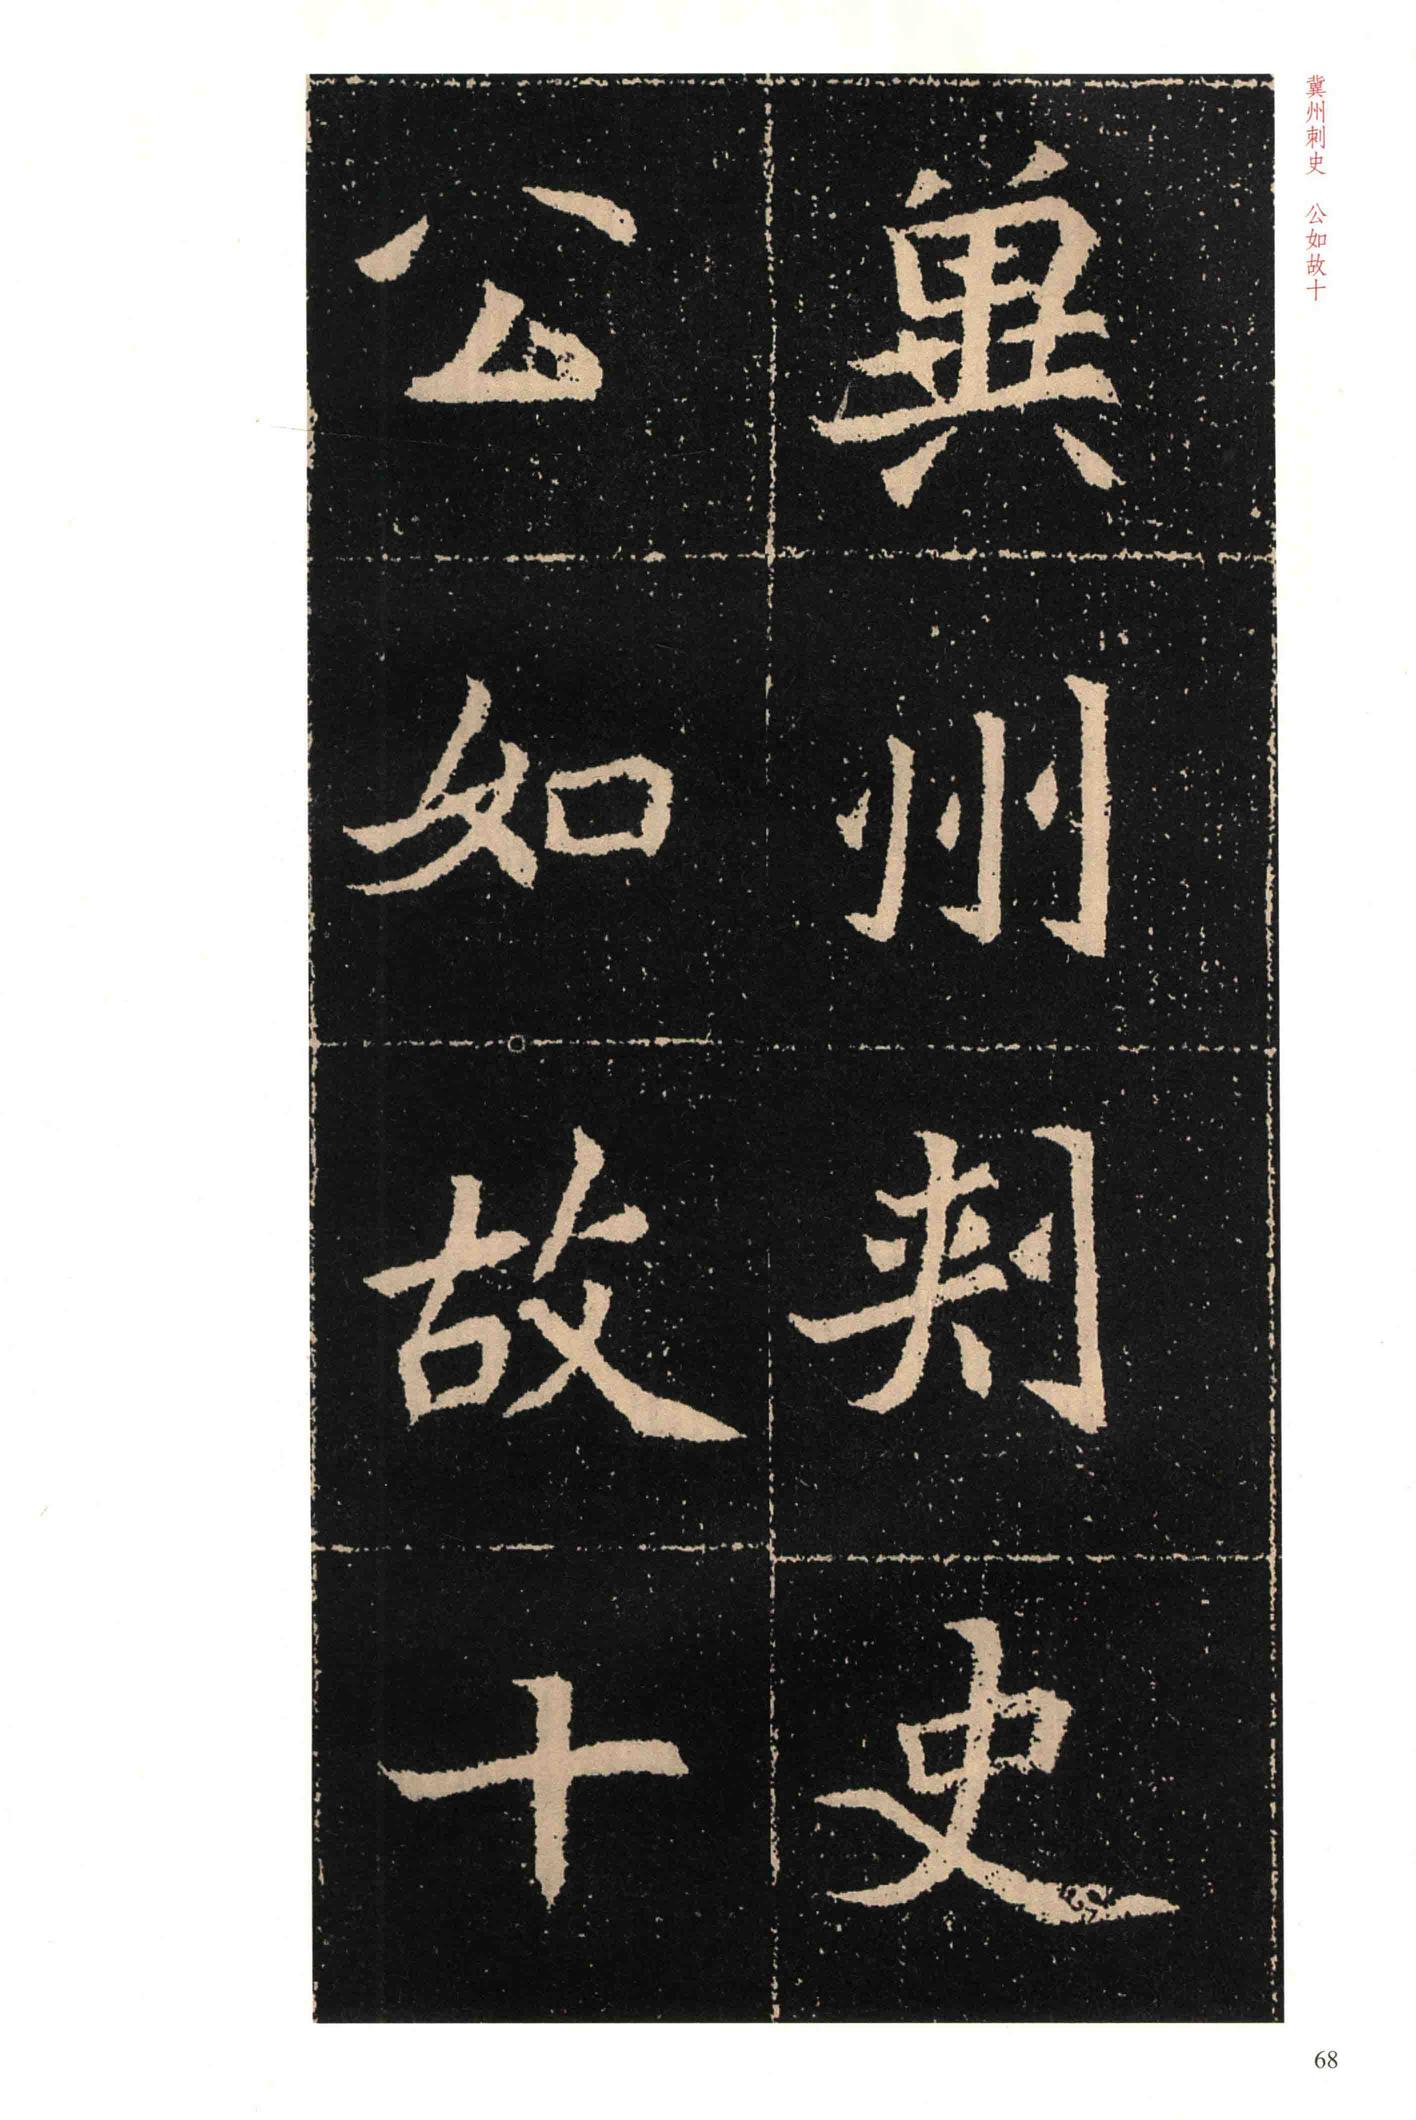 冀州刺史　公如故十
冀州刺史
公如故十
68